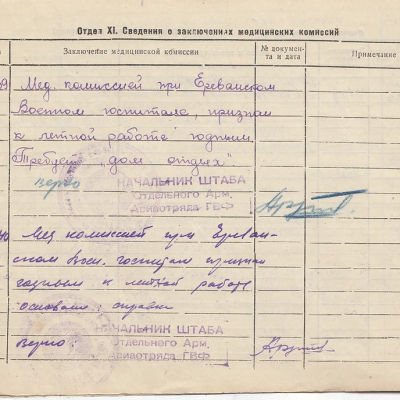 Отдел XI. Сведения о заключениях медицинских комиссий
Заключение медицинской комиссии
№ докумен-
та и дата
Примечание
9 Мед. комиссией при Ереванском
Военном госпитале, признан
к летной работе годным.
Требует "дом отдых"
верно
НАЧАЛЬНИК ШТАБА
Отдельного Арм.
Авиотряда ГВФ
Мед комиссией при Ереван-
ском Воен. госпитале признан
годным к летной работе
основание: справка
Верно:
НАЧАЛЬНИК ШТАБА
Отдельного Арм.
Авиотряда ГВФ